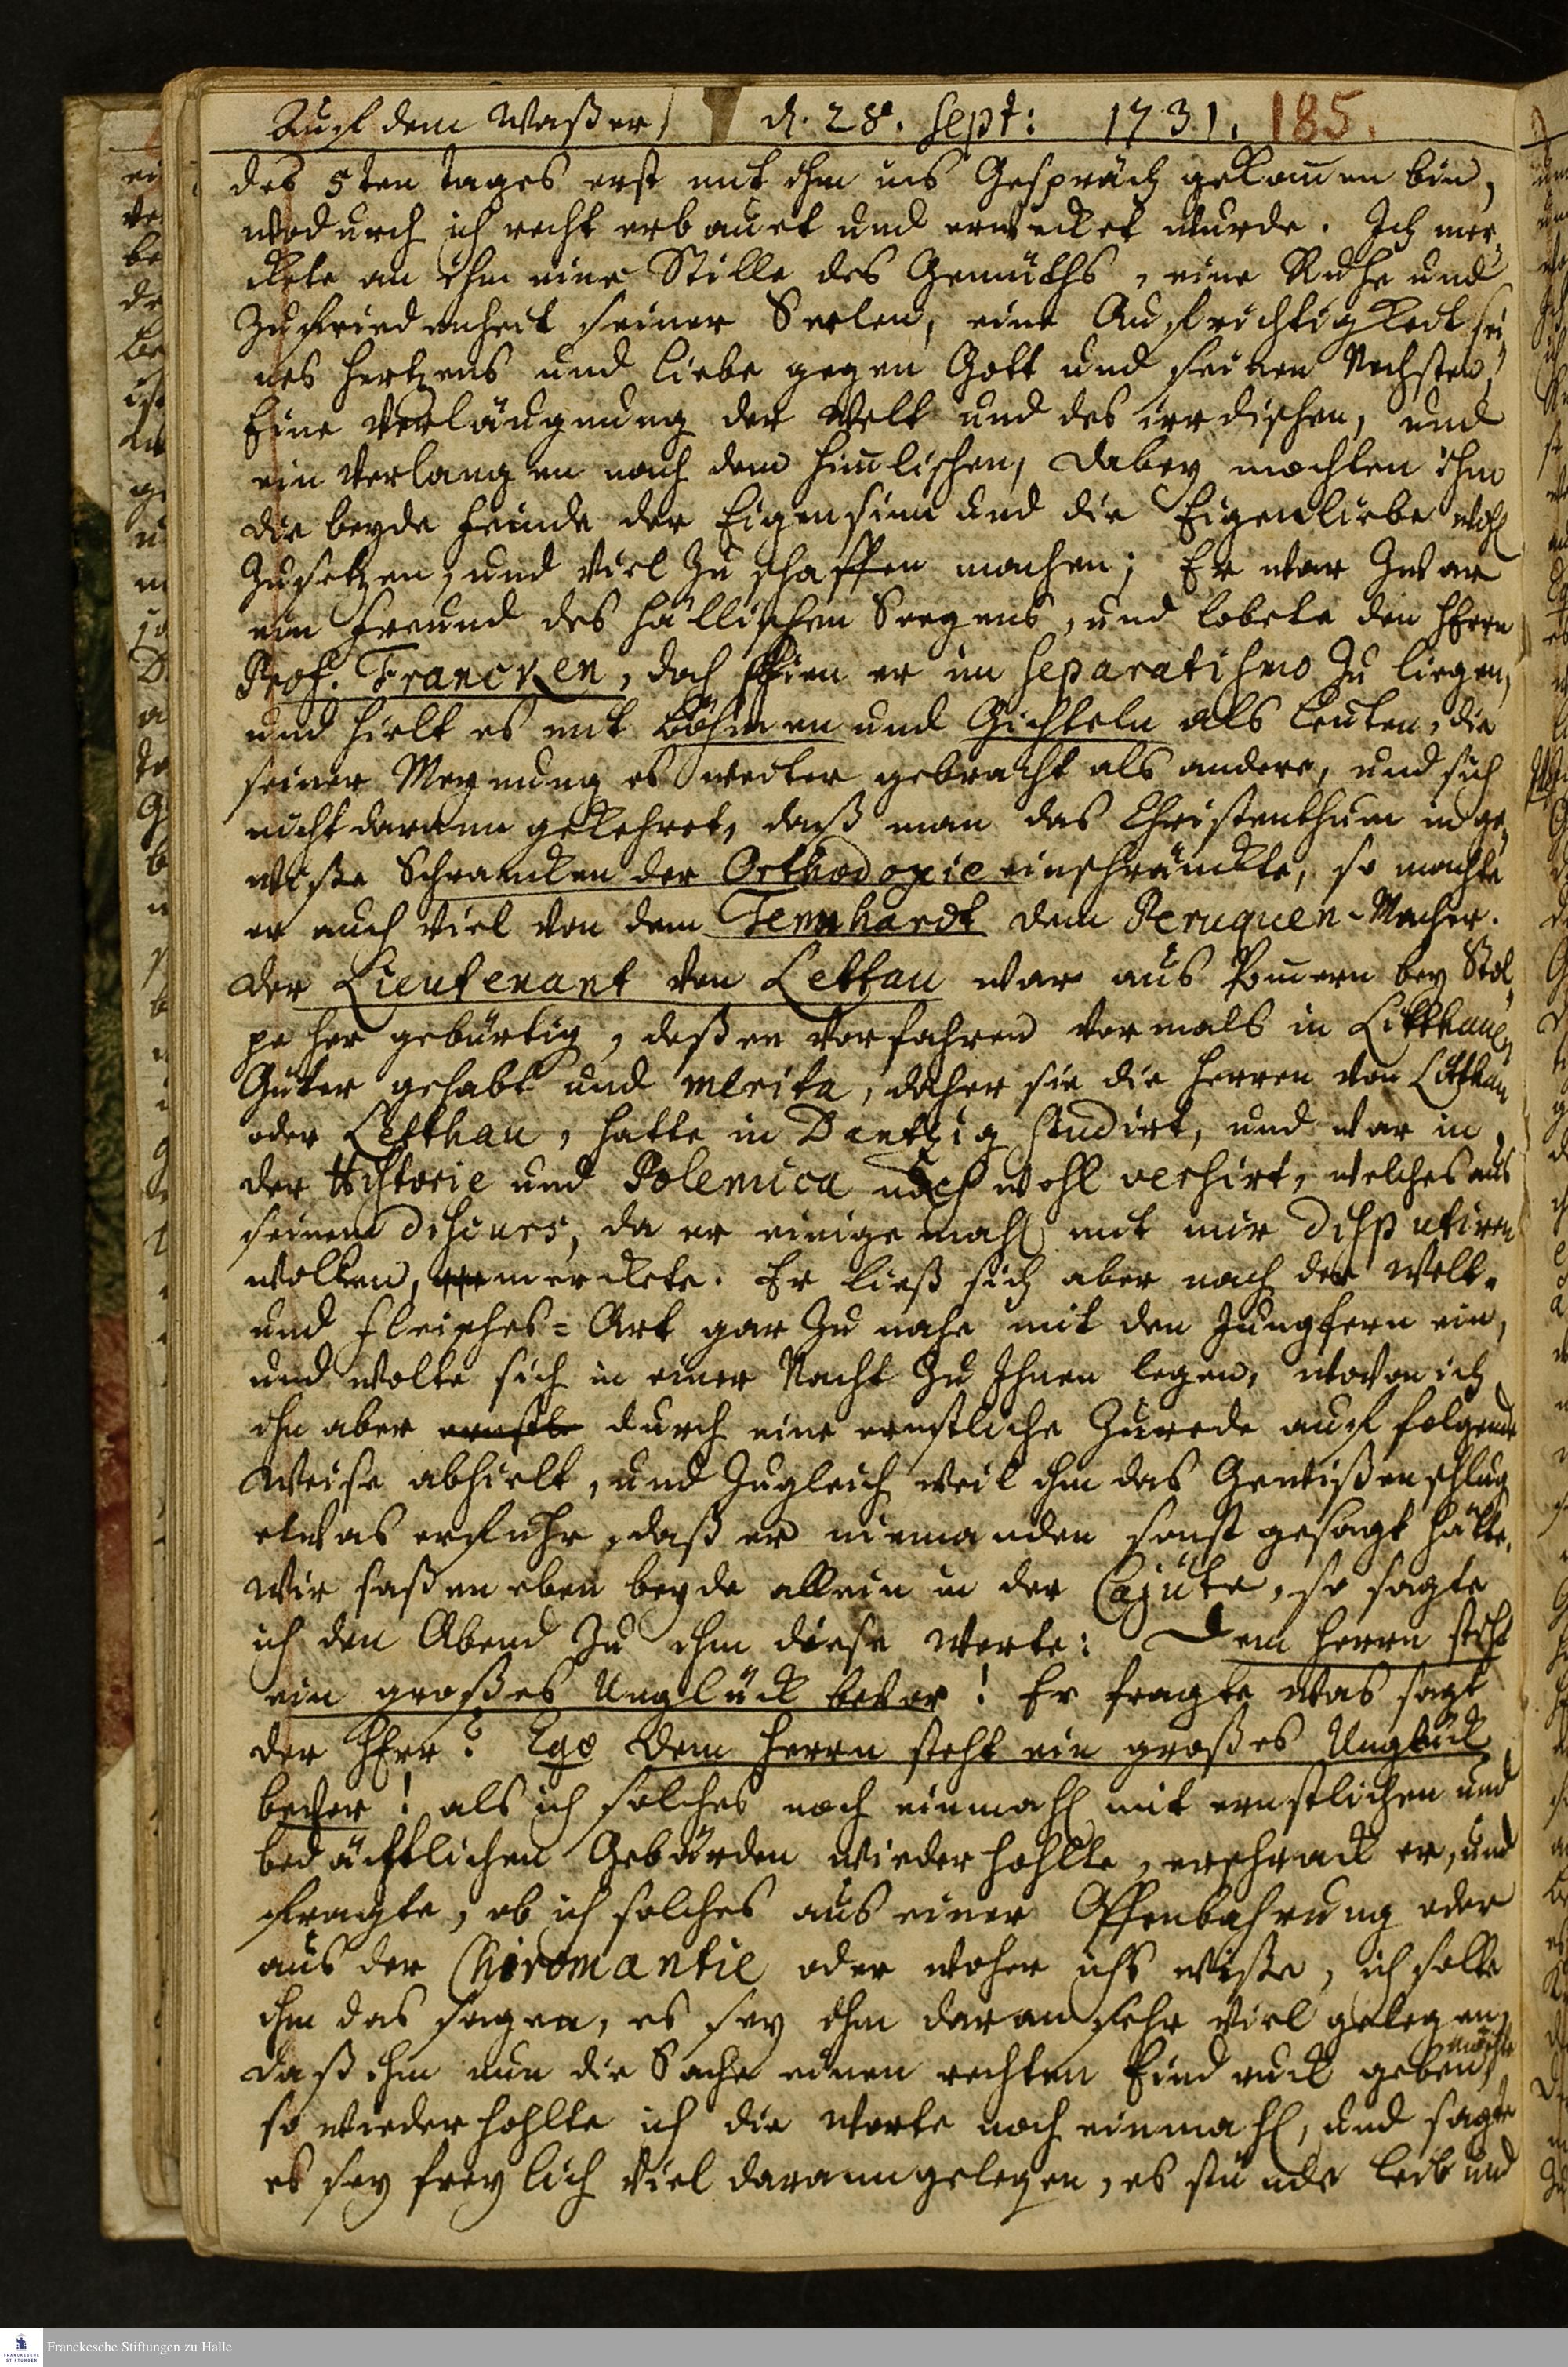 Auf dem Waßer d. 28. Sept: 1731. 185.
des 5ten tages erst mit ihm ins Gespräch gekom̄en bin,
wodurch ich recht erbauet und erwecket wurde. Ich mer,
ckete an ihm eine Stille des Gemüths, eine Ruhe und
Zufriedenheit seiner Seelen, eine Aufrichtigkeit sei,
nes Hertzens und Liebe gegen Gott und seinen Nechsten,
Eine Verläugnung der Welt und des irrdischen, und
ein Verlangen nach dem him̄lischen, dabey mochten ihm
die beyde Feinde der Eigensinn und die Eigenliebe wohl
Zusetzen, und viel zu schaffen machen; Er war zwar
ein Freund des Hällischen Seegens, und lobete den HErrn
Prof. Francken, doch schien er im Separatismo zu liegen,
und hielt es mit Böhmen und Gichteln als Leuten, die
seiner Meynung es weiter gebracht als andere, und sich
nicht darann gekehret, daß man das Christenthum in ge,
wiße Schrancken der Orthodoxie einschränckte, so machte
er auch viel von dem Tennhardt dem Peruquen-Macher.
Der Lieutenant von Lettau war aus Pom̄ern bey Stol,
pe her gebürtig, deßen Vorfahren vormals in Litthauen
Güter gehabt und merita, daher sie die Herren von Litthau
oder Letthau, hatte in Dantzig studirt, und war in
der Historie und Polemica noch wohl versirt, welches aus
seinem Discurs, da er einige mahl mit mir disputiren
wolten, merckete. Er ließ sich aber nach der Welt-
und Fleisches-Art gar zu nahe mit den Jungfern ein,
und wolte sich in einer Nacht zu Ihnen legen, wovon ich
ihn aber ernstl durch eine ernstliche Zurede auf folgende
Weise abhielt, und zugleich weil ihm das Gewißen schlug
etwas erfuhr, daß er niemanden sonst gesagt hätte.
Wir saßen eben beyde allein in der Cajüte, so sagte
ich den Abend zu ihm diese Worte: Dem Herrn steht
ein großes Unglück bevor! Er fragte was sagt
der HErr? Ego Dem Herrn steht ein großes Unglück
bevor! als ich solches noch einmahl mit ernstlichen und
bedächtlichen Gebärden wiederhohlte, erschrack er, und
fragte, ob ich solches aus einer Offenbahrung oder
aus der Chiromantie oder woher ichs wißte, ich solte
ihm das sagen, es sey ihm daran sehr viel gelegen,
daß ihm nun die Sache einen rechten Eindruck geben möchte,
so wiederhohlte ich die Worte noch einmahl, und sagte
es sey freylich viel darann gelegen, es stünde Leib und
Franckesche Stiftungen zu Halle